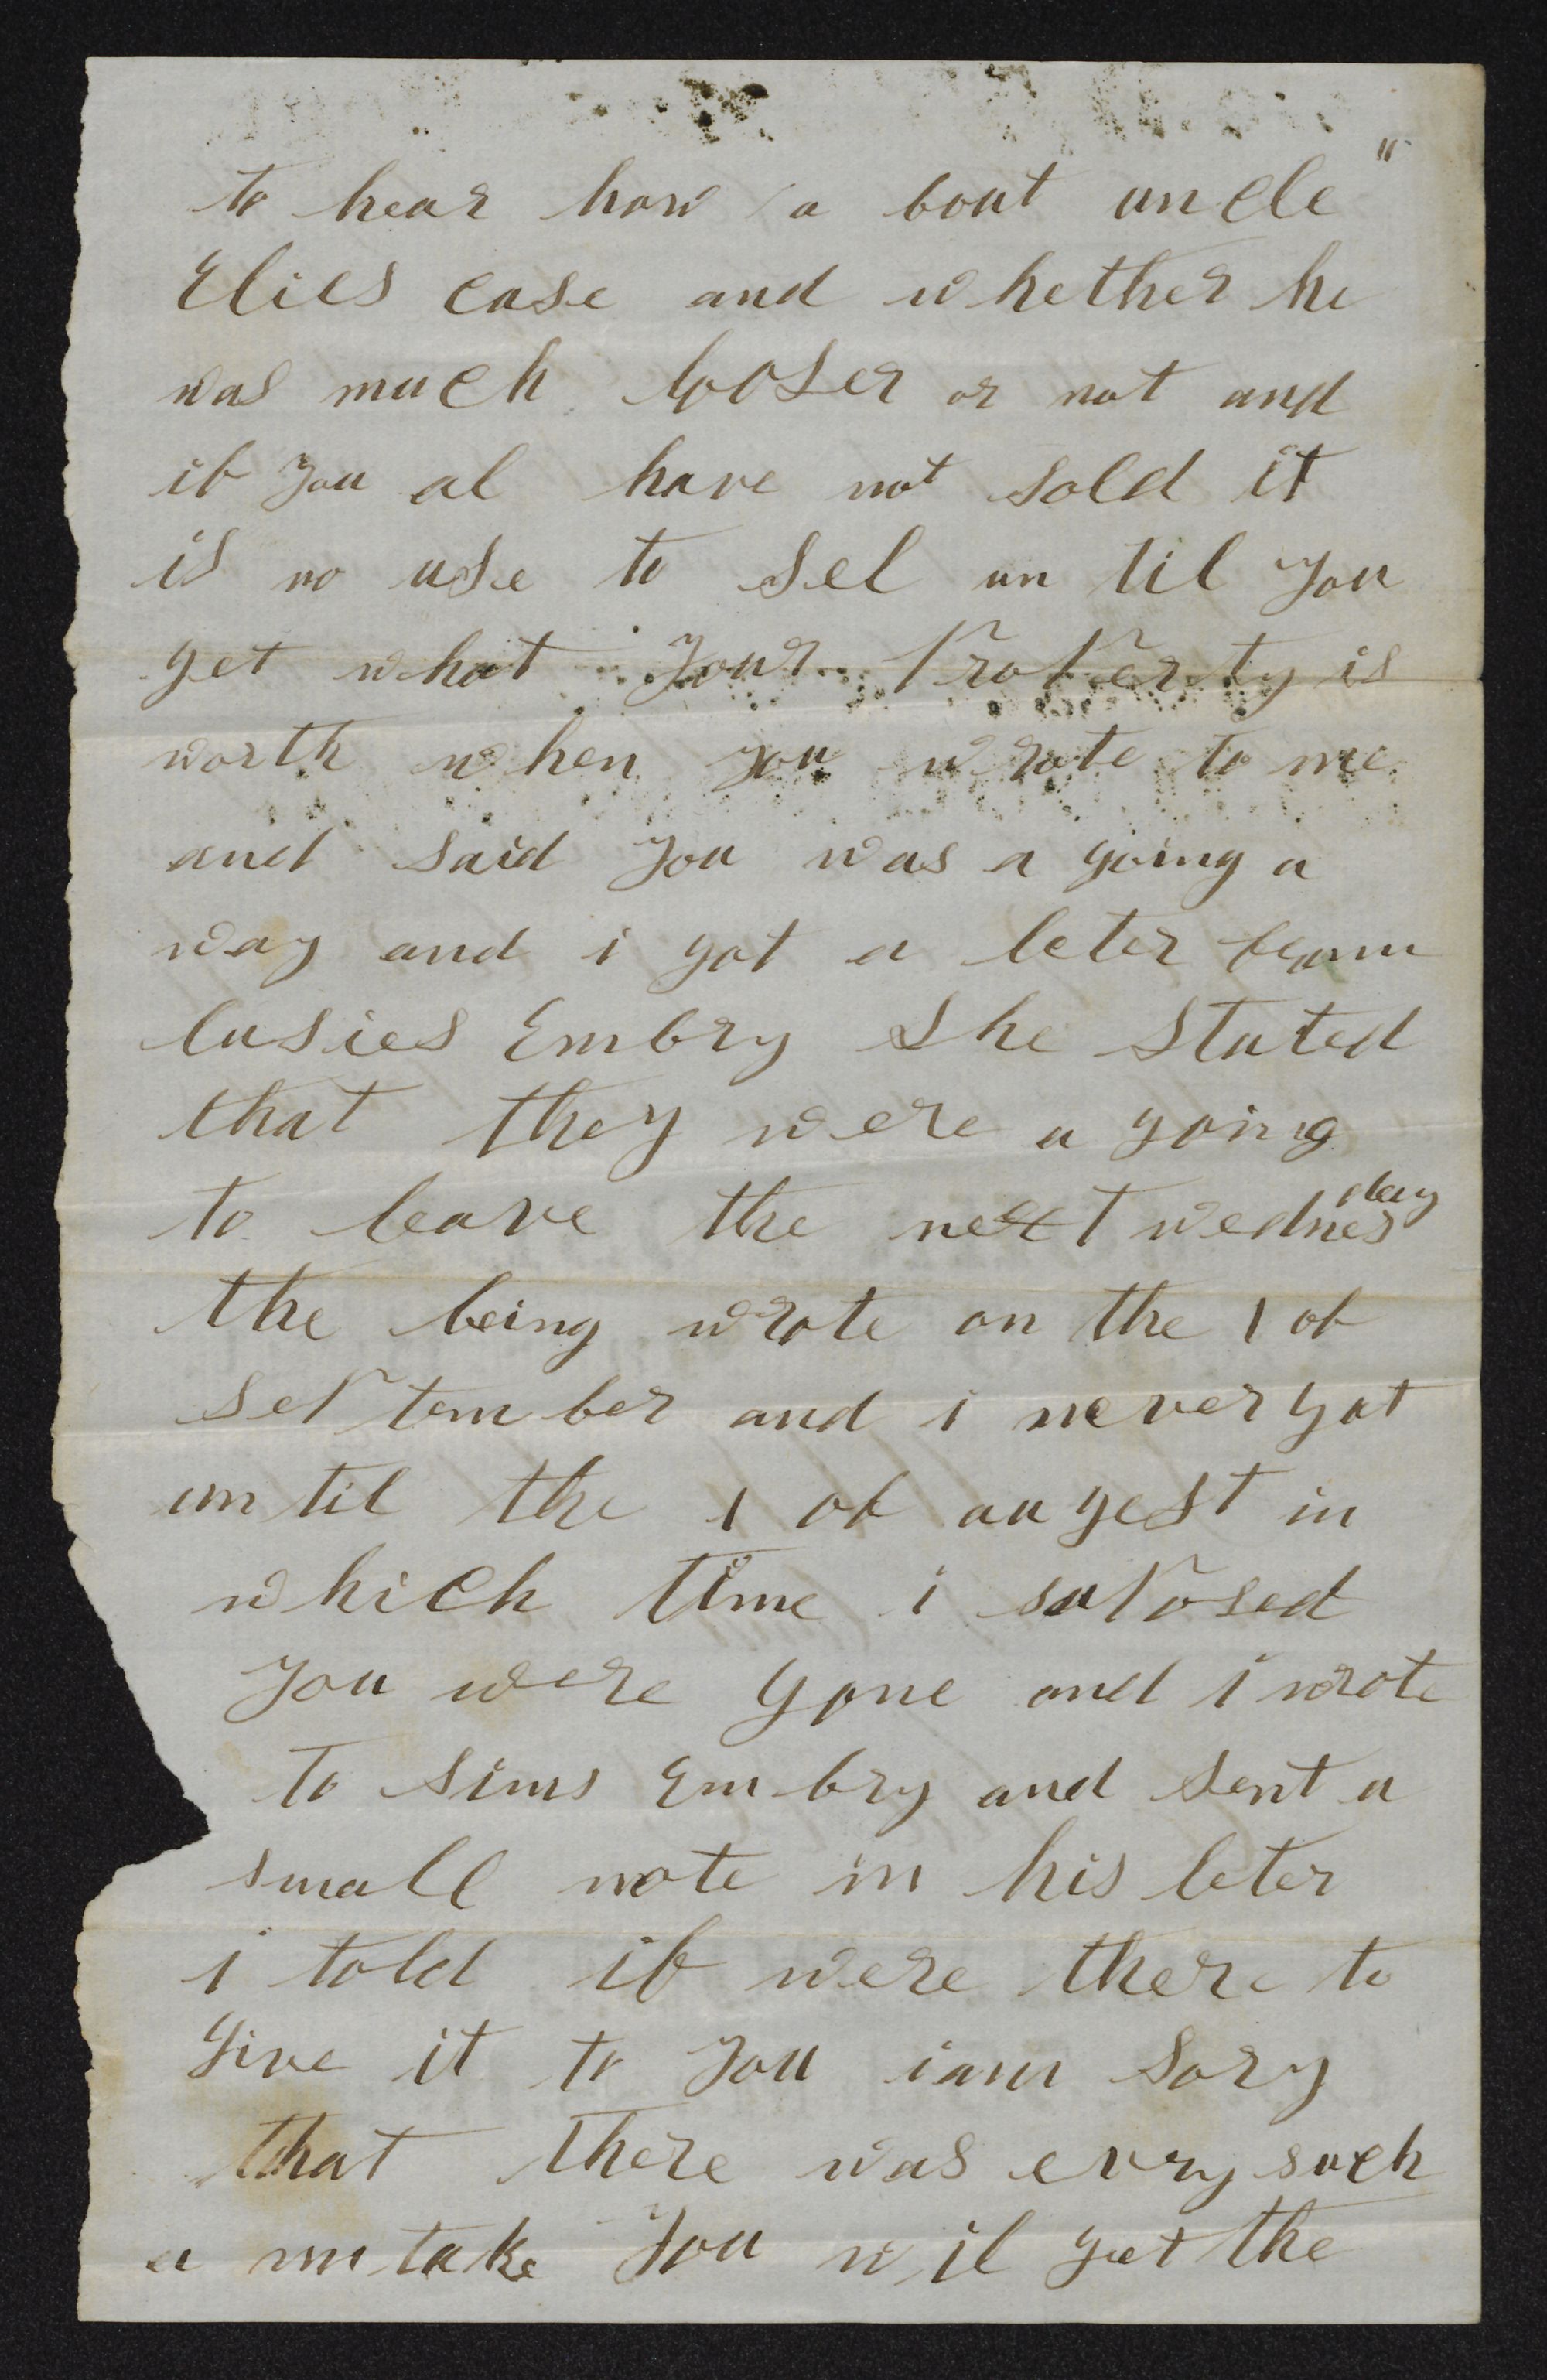 to hear how a bout un cle "
Elies case and w hether he
was much looser or not and
if you al have not sold it
is no use to sel un til you
get what your proper ty is
worth w hen you wrote to me
and said you was a going a
way and i got a leter from
lusies Embry She Stated
that they were a going
to leave the next wednes day
the being wrote on the 1 of
sep tem ber and i never got
un til the 1 of au gest in
w hich time i suposed
you were gone and i wrote
to sims Em bry and sent a
small note in his leter
i told if were there to
give it to you i am sory
that there was evry such
a mi take you w il get the